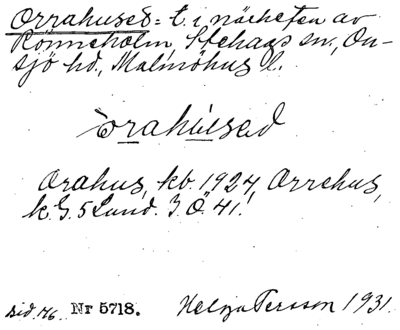 Orrahused = t. i närheten av
Rönneholm, Stehags sn., On-
sjö hd., Malmöhus l.
orahúsed
Orahus, kb. 1924, Orrehus,
k. G. 5 Lund. J Ö 41.
Sid. 46. Nr 5718. Helga Persson 1931.